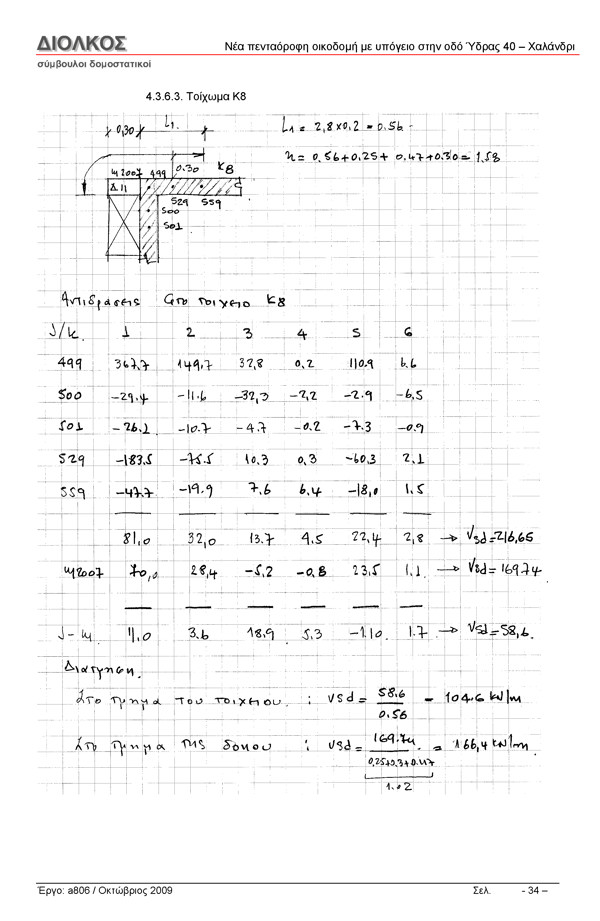 ΔΙΟΛΚΟΣ
Νέα πενταόροφη οικοδομή με υπόγειο στην οδό Ύδρας 40 – Χαλάνδρι
σύμβουλοι δομοστατικοί
4.3.6.3. Τοίχωμα Κ8
0,30 L1.
L1 = 2,8x0,2 = 0.56
n = 0,56+0,25+ 0,47+0.30 = 1,58
Ψ2007 499 0.30 K8
Δ.11
529 559
500
501
Αντιδράσεις στο τοιχείο K8
J/K. 1 2 3 4 5 6
499 367.7 149.7 32,8 0.2 110.9 6.6
500 -29.4 -11.6 -32,3 -2,2 -2.9 -6,5
501 -26.1 -10.7 -4.7 -0.2 -7.3 -0.9
529 -183.5 -75.5 10.3 0,3 -60.3 2,1
559 -47.7 -19.9 7,6 6,4 -18,0 1,5
81,0 32,0 13.7 4,5 22,4 2,8 → Vsd=216,65
Ψ2007 70,0 28,4 -5,2 -0,8 23.5 1,1. → Vsd=169.74
J-Ψ. 11.0 3.6 18,9 5,3 -1.10 1.7 → Vsd=58,6.
Διάτμηση.
Στο τμήμα του τοιχείου. : vsd = 58.6 / 0.56 = 104.6 kN/m
Στο τμήμα της δοκού : vsd = 169.74 / 0,25+0.3+0.47 = 166,4 kN/m
1.02
Έργο: a806 / Οκτώβριος 2009 Σελ. - 34 –